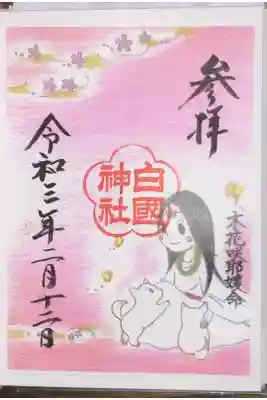 参拝
木花咲耶姫命
白國
神社
令和三年二月十二日